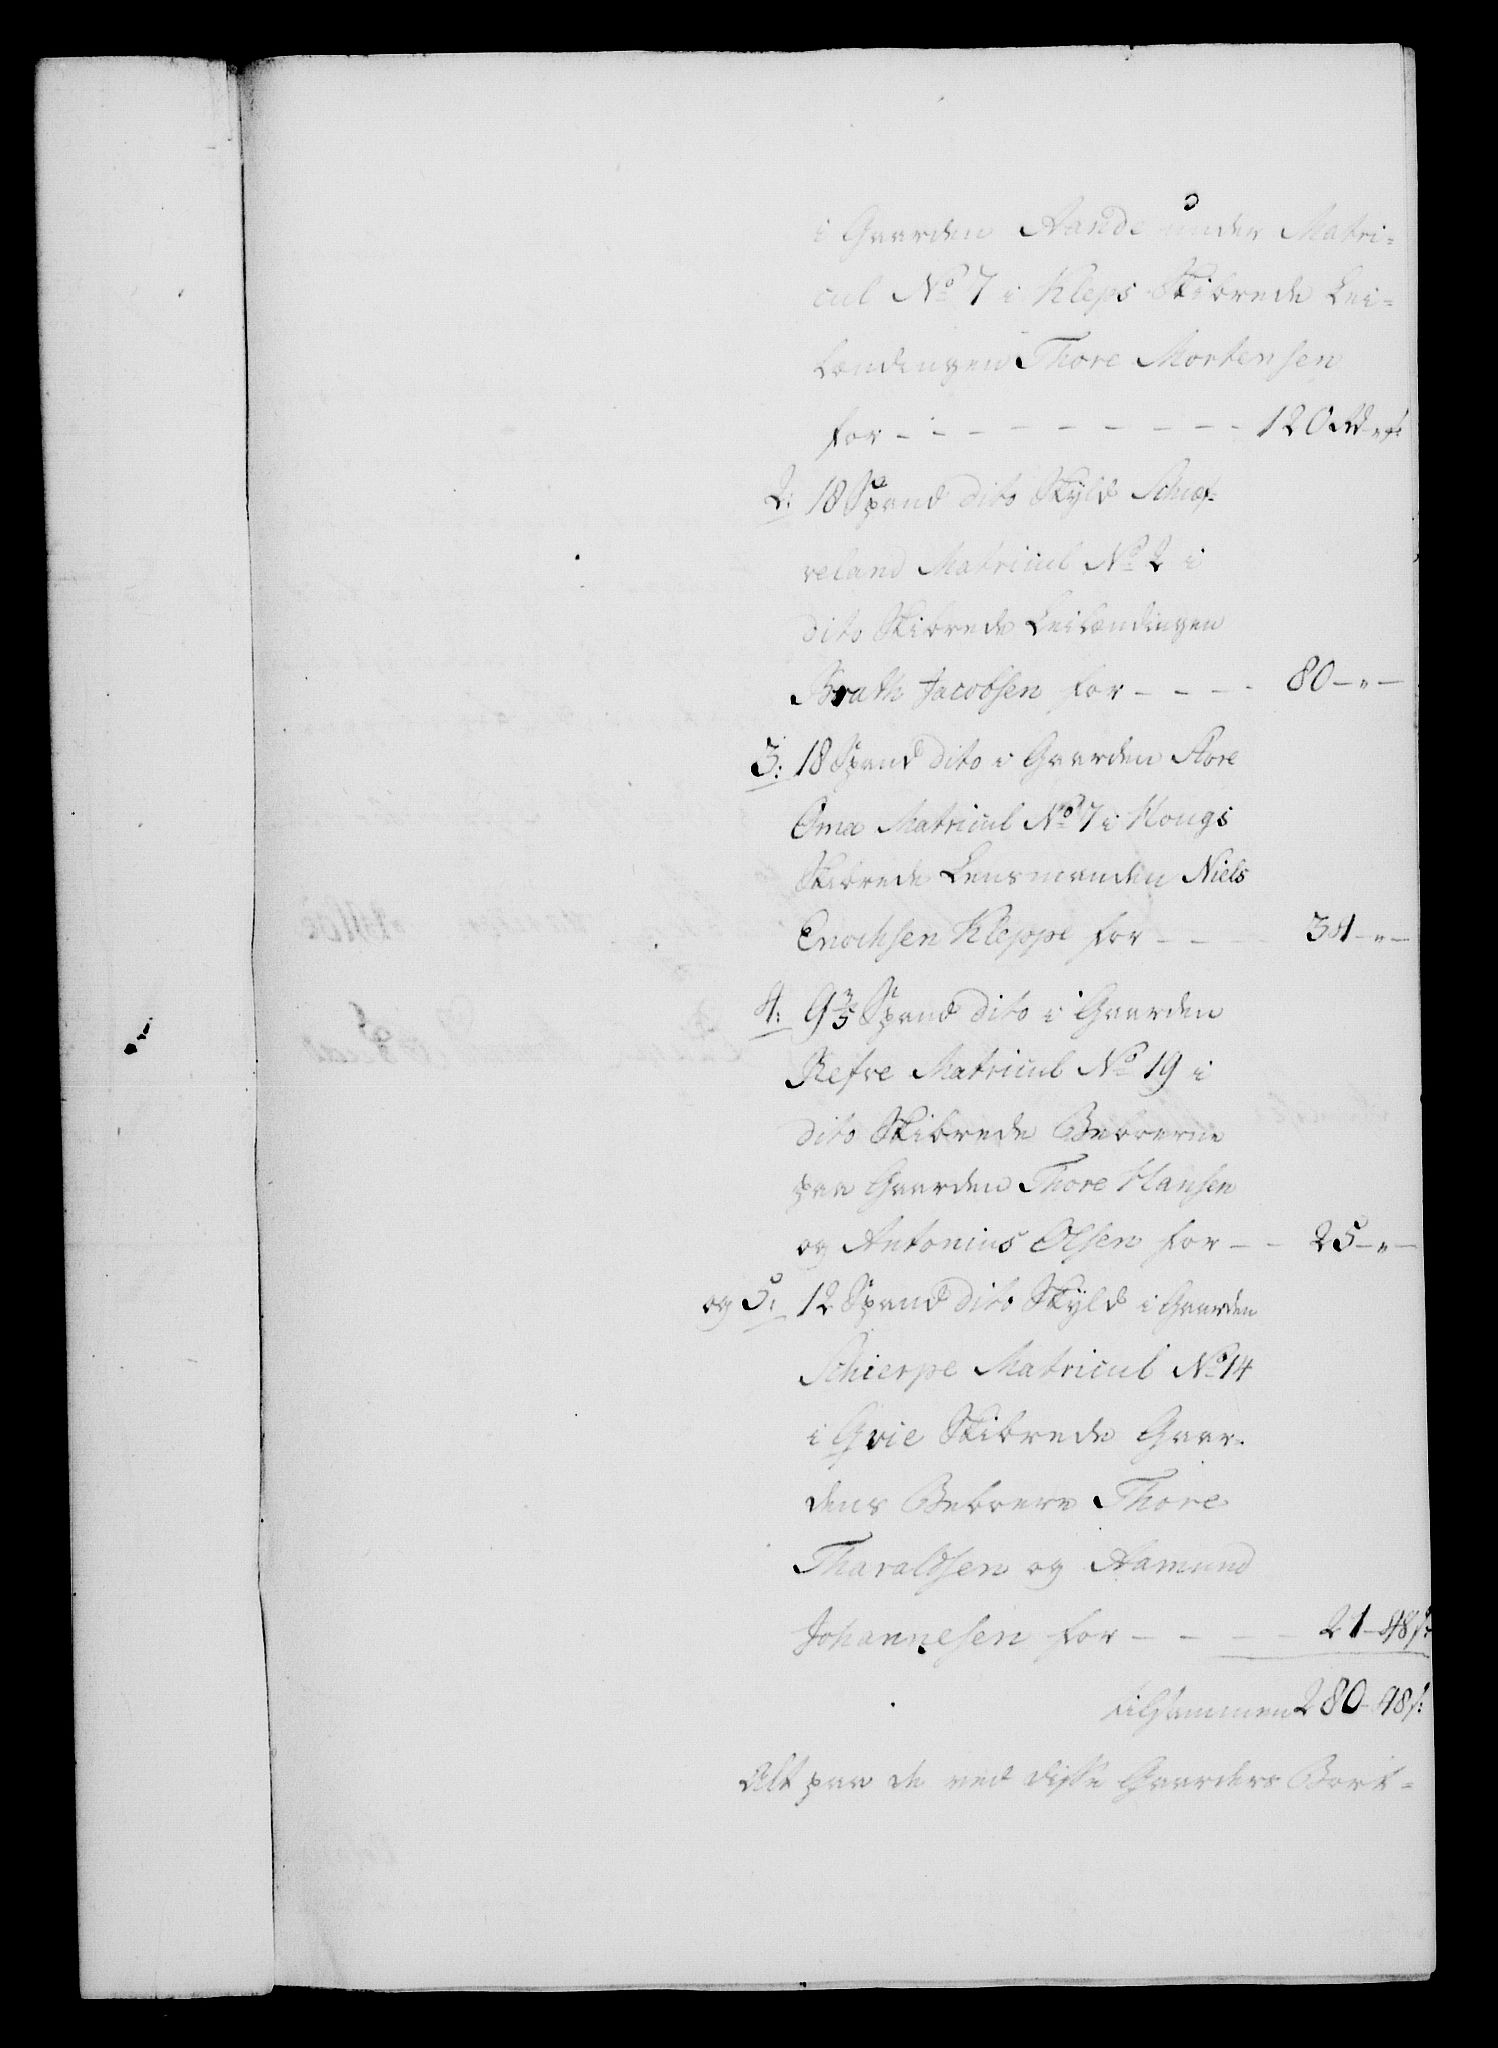 i Gaarden Aande under Matri=
cul No 7 i Kleps Skibrede Lei=
lændingen Thore Mortensen
for - - - - - - - - - 120 Rd „ s:
2: 18 Spand dito Skyld Schief=
veland Matricul No 2 i
dito Skibrede Leilændingen
Brath Jacobsen for - - - - 80 - „ -
3: 18 Spand dito i Gaarden Store
Oma Matricul No 7 i Hougs
Skibrede Lensmanden Niels
Enochsen Kleppe for - - - 34 - „ -
4: 9 3/5 Spand dito i Gaarden
Refve Matricul No 19 i
dito Skibrede Beboerne
paa Gaarden Thore Hansen
og Antonius Olsen for - - 25 - „ -
og 5: 12 Spand dito Skyld i Gaarden
Schierpe Matricul No 14
i Qvie Skibrede Gaar=
dens Beboere Thore
Tharaldsen og Aamund
Johannesen for - - - - 21 - 48 s:
tilsammen 280 - 48 s:
Alt paa de ved disse Gaarders Bort=